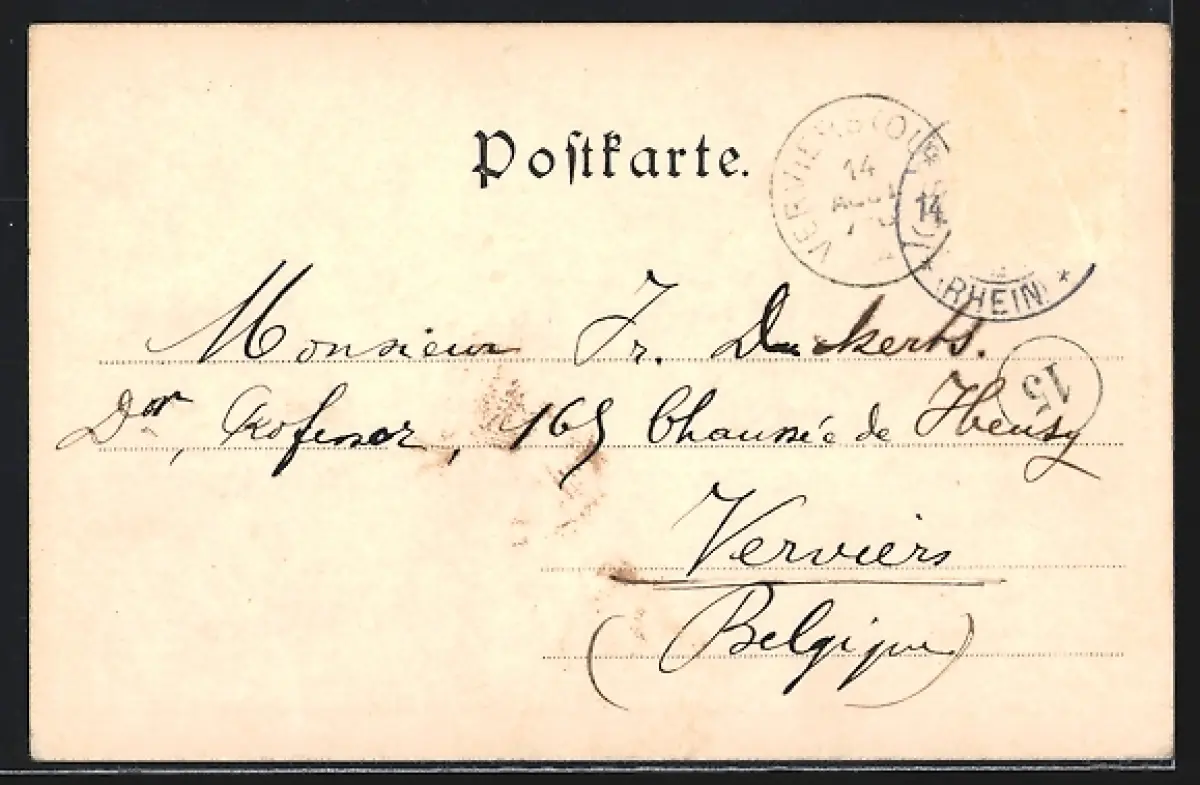 Postkarte.
VERVIERS (OU
14
AOUT
14.
* (RHEIN) *
15
Monsieur Fr. Duckerts.
Dor, Professor, 165 Chaussée de Heusy
Verviers
(Belgique)